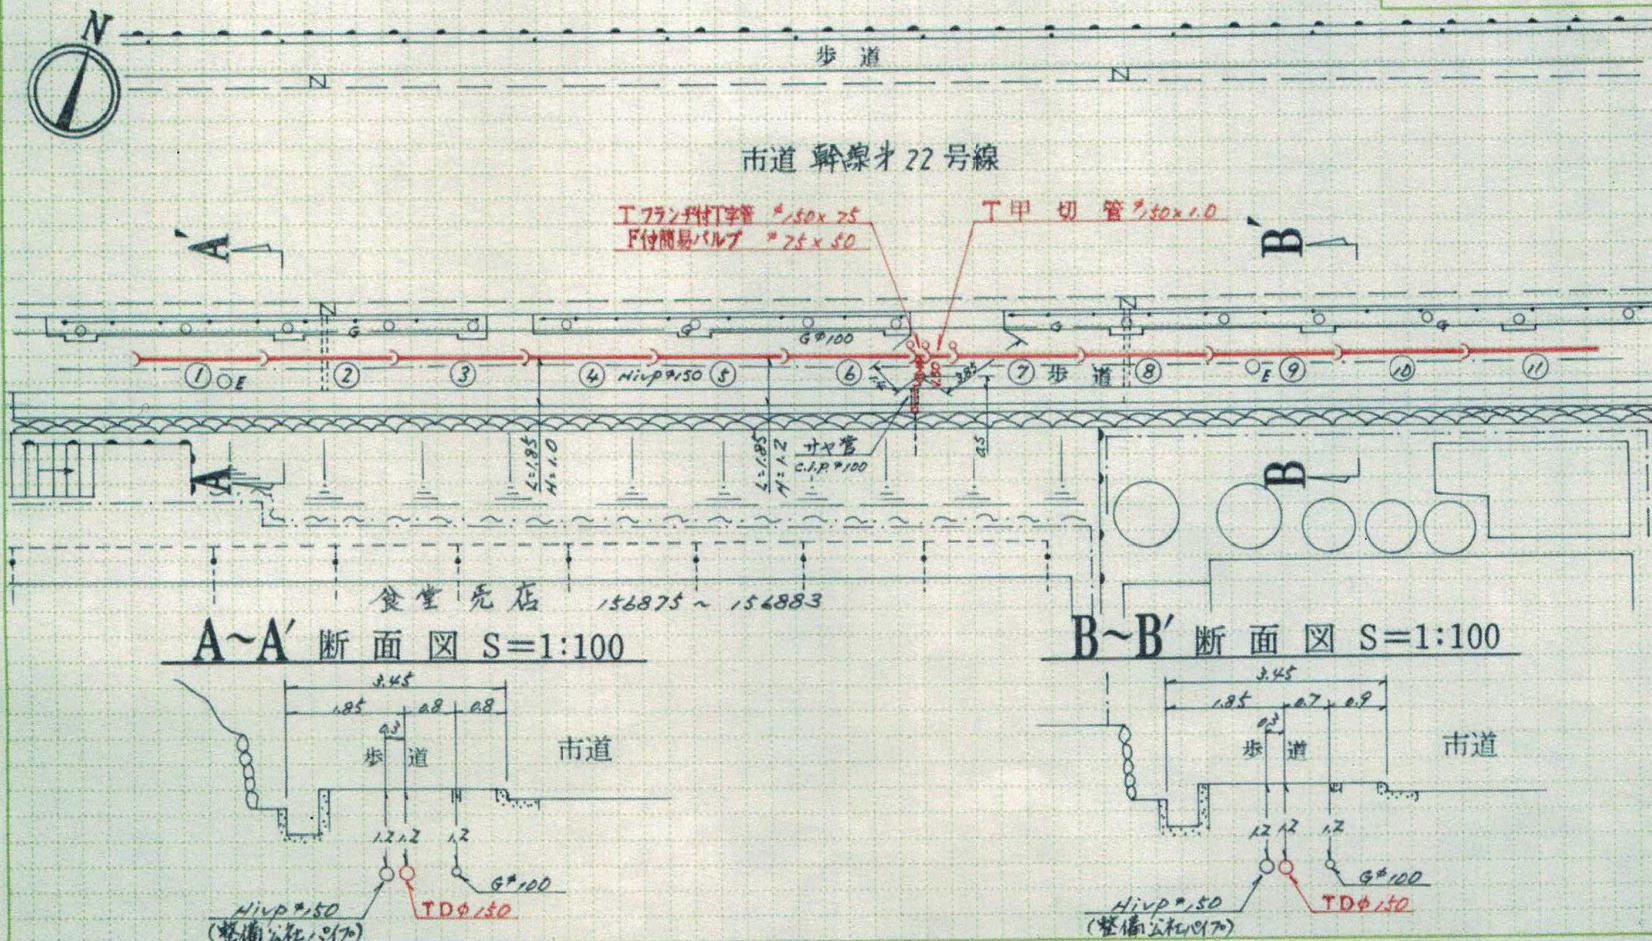 N
歩道
N
N
市道 幹線才22号線
Tフランヂ付T字管 φ150×75
F付簡易バルブ φ75×50
T甲切管φ150×1.0
A'
B'
N
N
G
G
Gφ100
G
G
① E ② ③ ④ Hivpφ150 ⑤ ⑥ ⑦ 歩道 ⑧ E ⑨ ⑩ ⑪
1.50
3.85
サヤ管
C.I.P.φ100
L=1.85
H=1.0
L=1.85
H=1.2
0.5
A
B
食堂売店 156875~156883
A~A' 断面図 S=1:100
3.45
1.85 0.8 0.8
0.3
歩道
市道
1.2 1.2 1.2
Gφ100
Hivpφ150
TDφ150
(整備公社パイプ)
B~B' 断面図 S=1:100
3.45
1.85 0.7 0.9
0.3
歩道
市道
1.2 1.2 1.2
Gφ100
Hivpφ150
TDφ150
(整備公社パイプ)